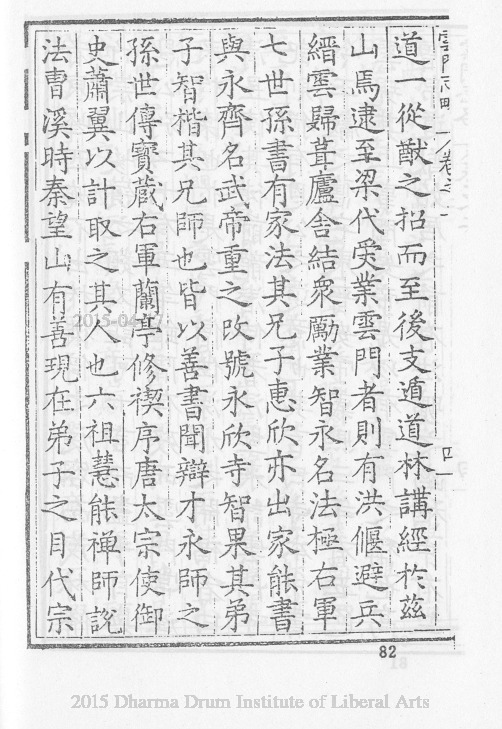 雲門志略 卷之一 四
道一從猷之招而至後支遁道林講經於茲
山馬逮至梁代受業雲門者則有洪偃避兵
縉雲歸葺廬舍結衆勵業智永名法極右軍
七世孫書有家法其兄子惠欣亦出家能書
與永齊名武帝重之改號永欣寺智果其弟
子智楷其兄師也皆以善書聞辯才永師之
孫世傳寶蔵右軍蘭亭修禊序唐太宗使御
史蕭翼以計取之其人也六祖慧能禅師說
法曹溪時秦望山有善現在弟子之目代宗
82
2015 Dharma Drum Institute of Liberal Arts